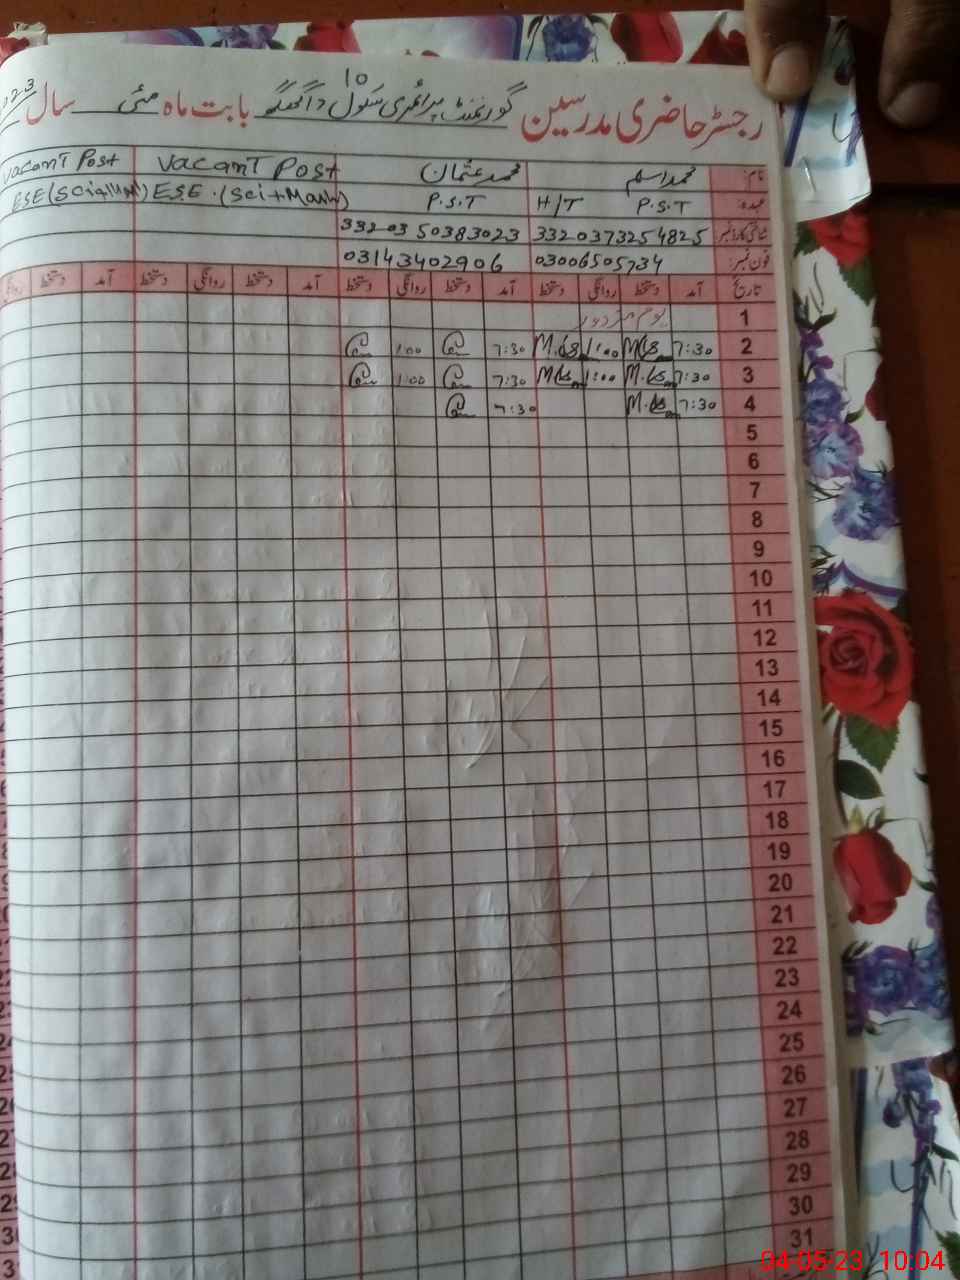 رجسٹر حاضری مدرسین گورنمنٹ پرائمری سکول 10 بابت ماہ مئی سال 2023
نام: محمد اسلم محمد عثمان Vacant Post Vacant Post
عہدہ: P.S.T H/T P.S.T E.S.E.(Sci+Math) ESE(Sci+Math)
شناختی کارڈ نمبر: 3320373254825 3320350383023
فون نمبر: 03006505734 03143402906
تاریخ آمد دستخط روانگی دستخط آمد دستخط روانگی دستخط آمد دستخط روانگی دستخط آمد دستخط روانگی
1 یوم مزدور
2 7:30 1:00 7:30 1:00
3 7:30 1:00 7:30 1:00
4 7:30 7:30
5
6
7
8
9
10
11
12
13
14
15
16
17
18
19
20
21
22
23
24
25
26
27
28
29
30
31
04-05-23 10:04